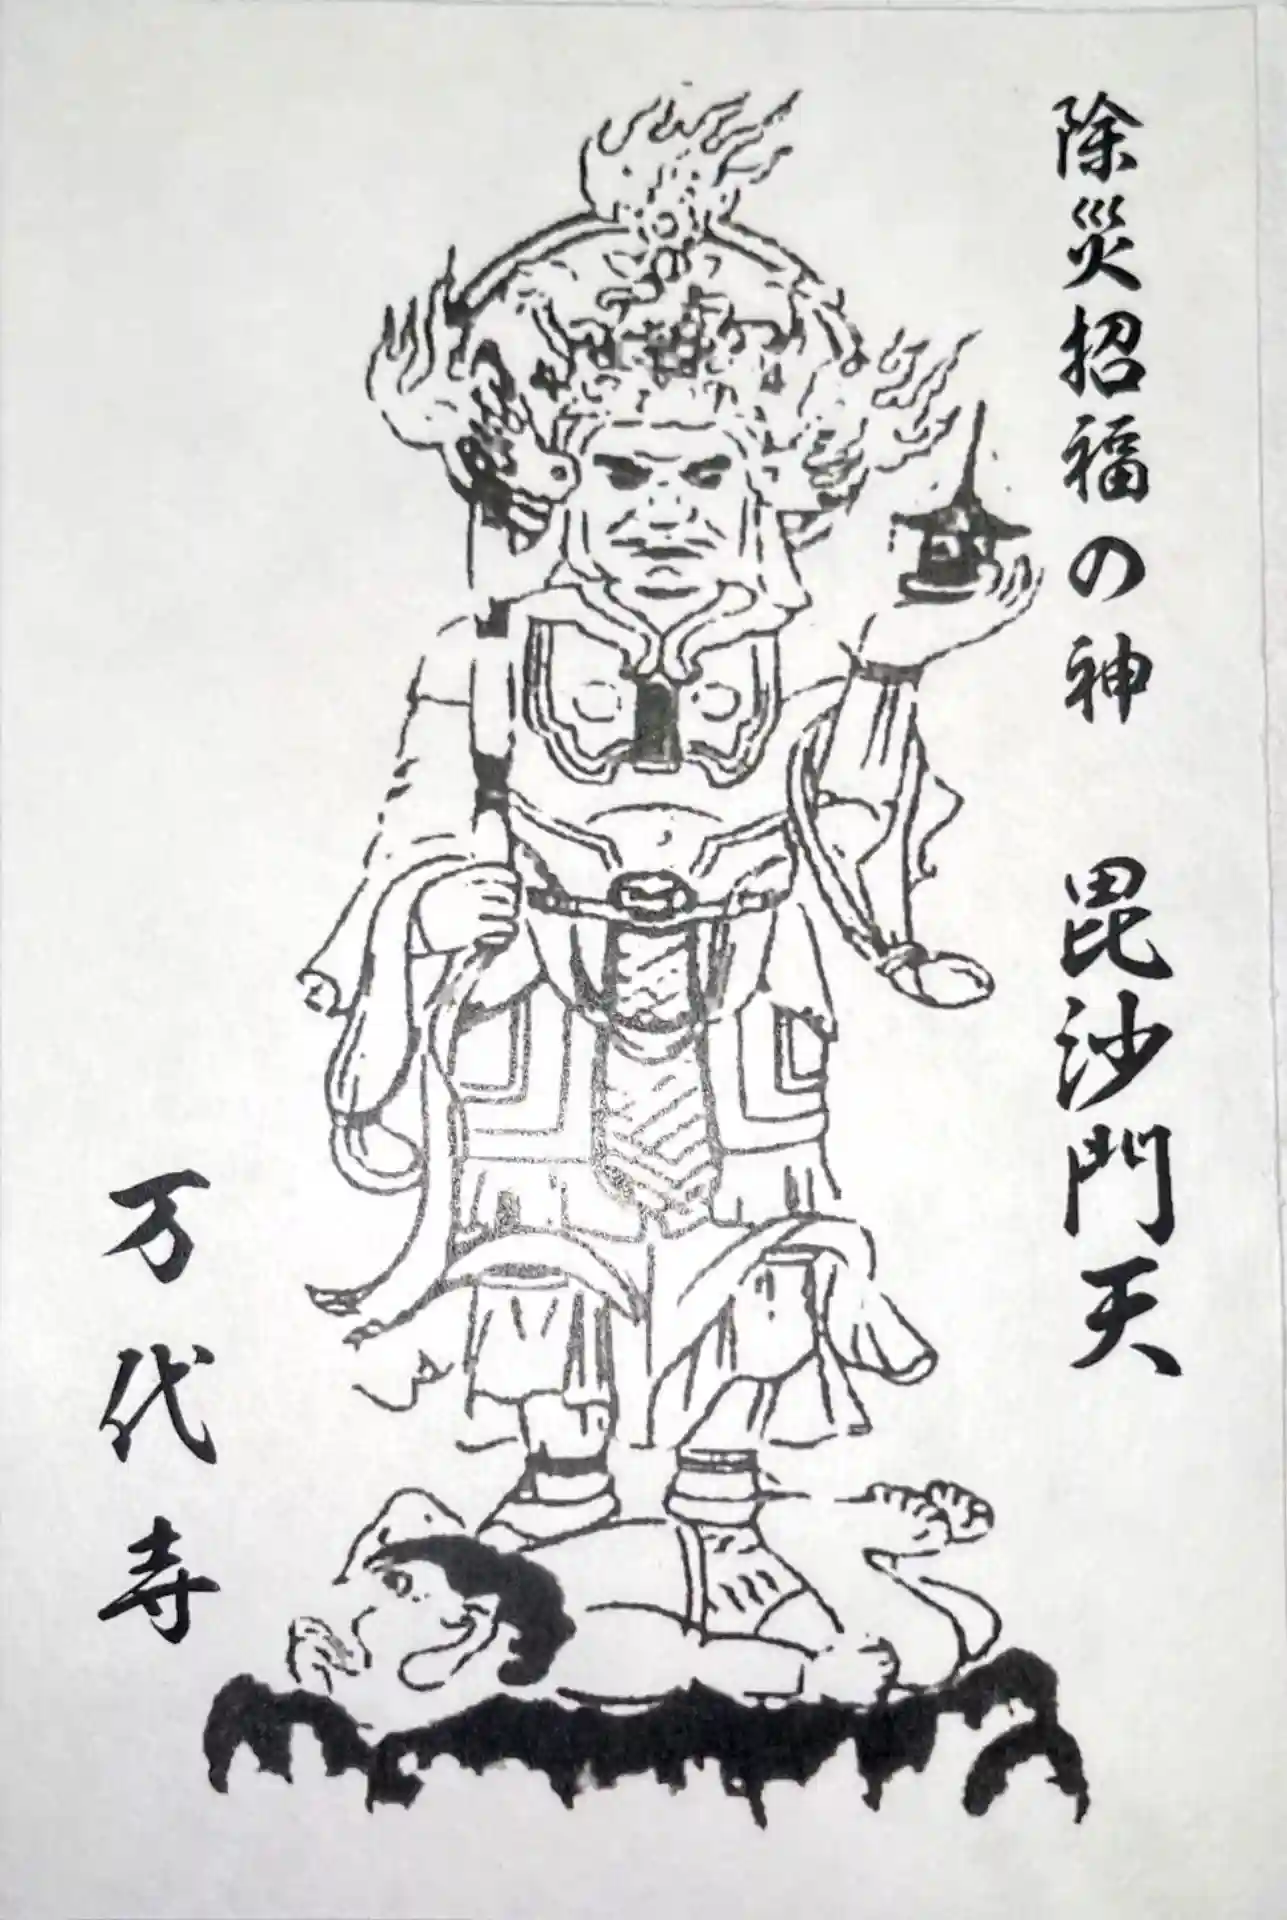 除災招福の神　毘沙門天
万代寺